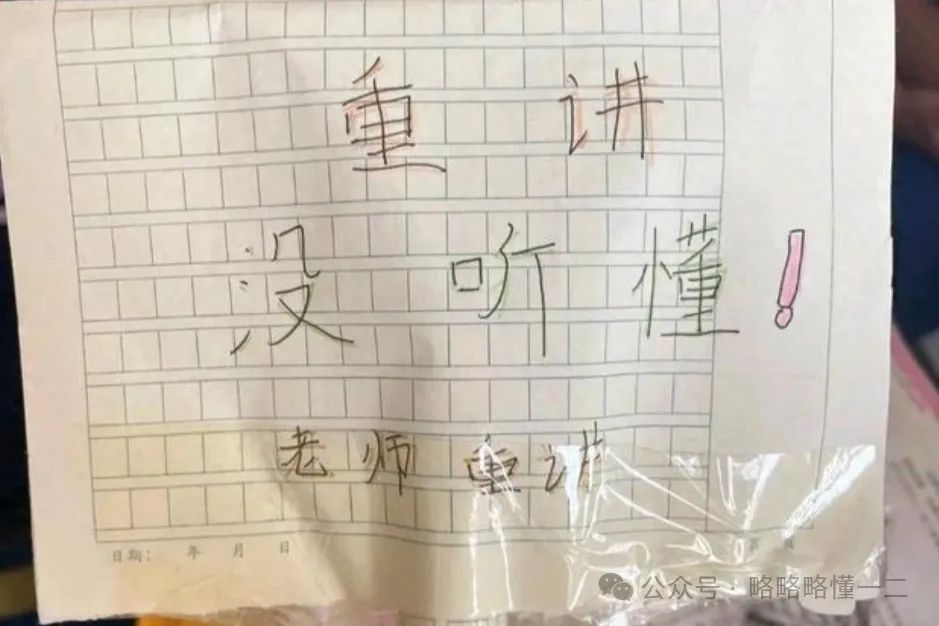 重讲
没听懂!
老师重讲
日期: 年 月 日
公众号·略略略懂一二